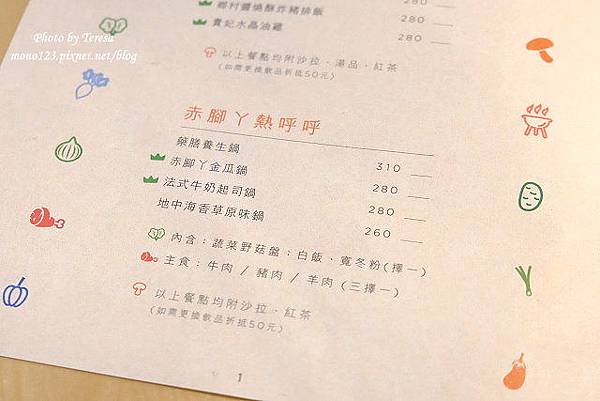 鄉村醬燒酥炸豬排飯 280
貴妃水晶油雞 280
280
以上餐點均附沙拉、湯品、紅茶
(如需更換飲品折抵50元)
赤腳丫熱呼呼
藥膳養生鍋 310
赤腳丫金瓜鍋 280
法式牛奶起司鍋 280
地中海香草原味鍋 260
內含：蔬菜野菇盤；白飯、寬冬粉(擇一)
主食：牛肉 / 豬肉 / 羊肉 (三擇一)
以上餐點均附沙拉、紅茶
(如需更換飲品折抵50元)
1
Photo by Teresa
mono123.pixnet.net/blog